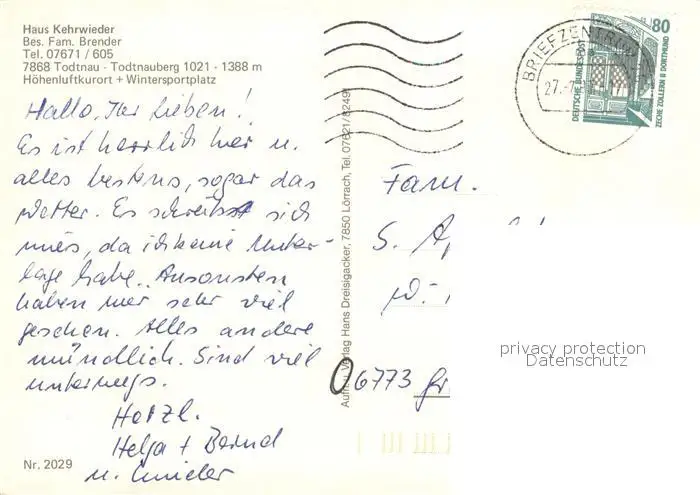 Haus Kehrwieder
Bes. Fam. Brender
Tel. 07671 / 605
7868 Todtnau · Todtnauberg 1021 - 1388 m
Höhenluftkurort + Wintersportplatz
Hallo, Ihr Lieben!
Es ist herrlich hier u.
alles bestens, sogar das
Wetter. Es schreibt sich
mies, da ich keine Unter-
lage habe. Ansonsten
haben wir sehr viel
gesehen. Alles andere
mündlich. Sind viel
unterwegs.
Herzl.
Helga + Bernd
u.
Nr. 2029
Aufn. u. Verlag Hans Dreisigacker, 7850 Lörrach, Tel. 07621/8249
BRIEFZENTRUM
27.-7.
80
DEUTSCHE BUNDESPOST
ZECHE ZOLLERN II DORTMUND
Fam.
S. A
W.
06773 Gr
privacy protection
Datenschutz